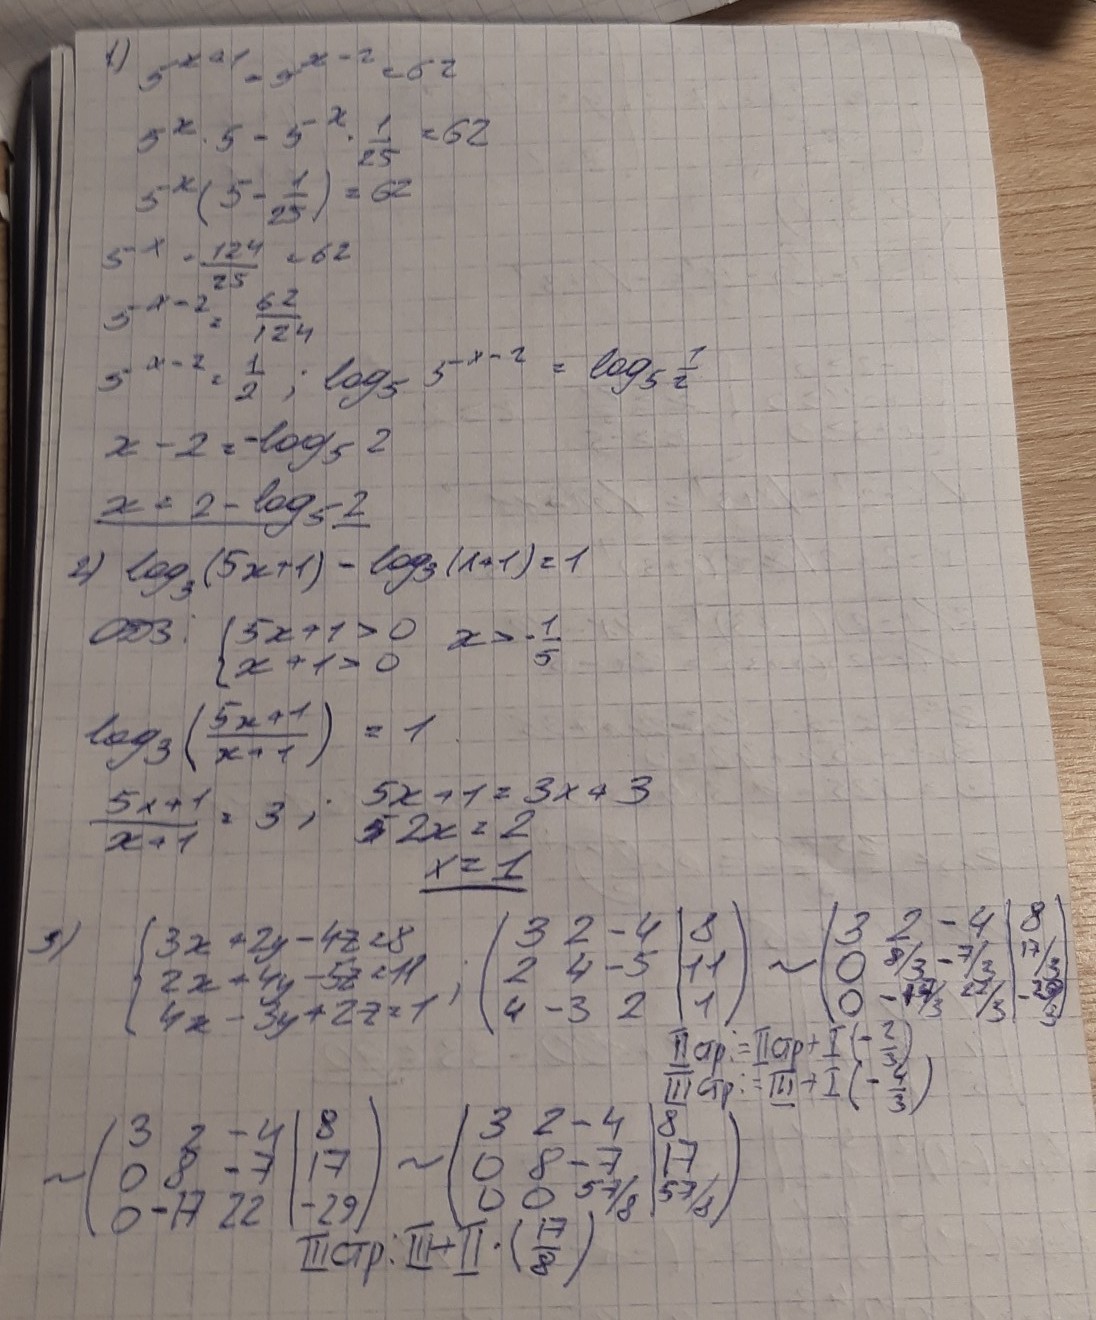 1) 5^{x+1} - 5^{x-2} = 62
5^x · 5 - 5^x · \frac{1}{25} = 62
5^x (5 - \frac{1}{25}) = 62
5^x · \frac{124}{25} = 62
5^{x-2} = \frac{62}{124}
5^{x-2} = \frac{1}{2} ; log_5 5^{x-2} = log_5 \frac{1}{2}
x - 2 = -log_5 2
x = 2 - log_5 2
2) log_3 (5x+1) - log_3 (x+1) = 1
ОДЗ: { 5x+1 > 0 x > -\frac{1}{5}
x+1 > 0
log_3 (\frac{5x+1}{x+1}) = 1
\frac{5x+1}{x+1} = 3 ; 5x+1 = 3x+3
2x = 2
x = 1
3) { 3x+2y-4z=8 ; ( 3 2 -4 | 8 ) ~ ( 3 2 -4 | 8 )
2x+4y-5z=11 ( 2 4 -5 | 11 ) ( 0 8/3 -7/3 | 17/3 )
4x-3y+2z=1 ( 4 -3 2 | 1 ) ( 0 -17/3 22/3 | -29/3 )
II стр:=II стр+I (-\frac{2}{3})
III стр:=III+I (-\frac{4}{3})
~ ( 3 2 -4 | 8 ) ~ ( 3 2 -4 | 8 )
( 0 8 -7 | 17 ) ( 0 8 -7 | 17 )
( 0 -17 22 | -29 ) ( 0 0 57/8 | 57/8 )
III стр: III+II · (\frac{17}{8})